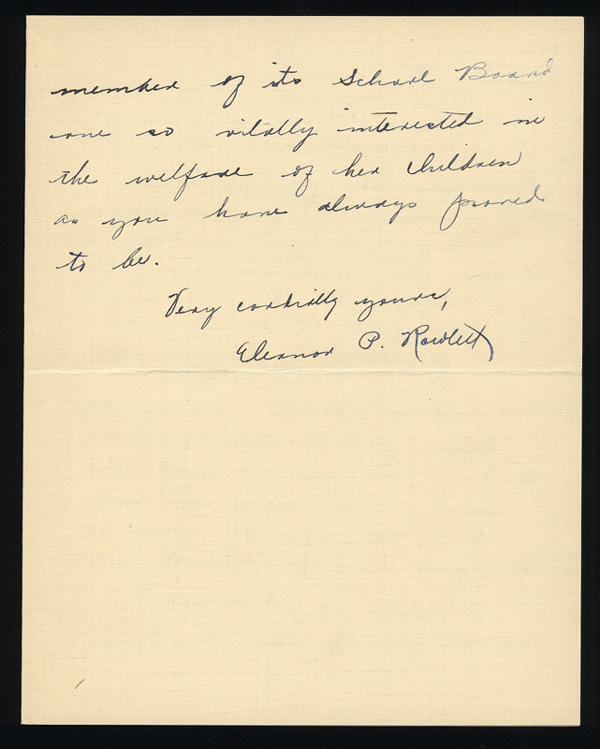 member of its School Board
one so vitally interested in
the welfare of her children
as you have always proved
to be.
Very cordially yours,
Eleanor P. Rowlett